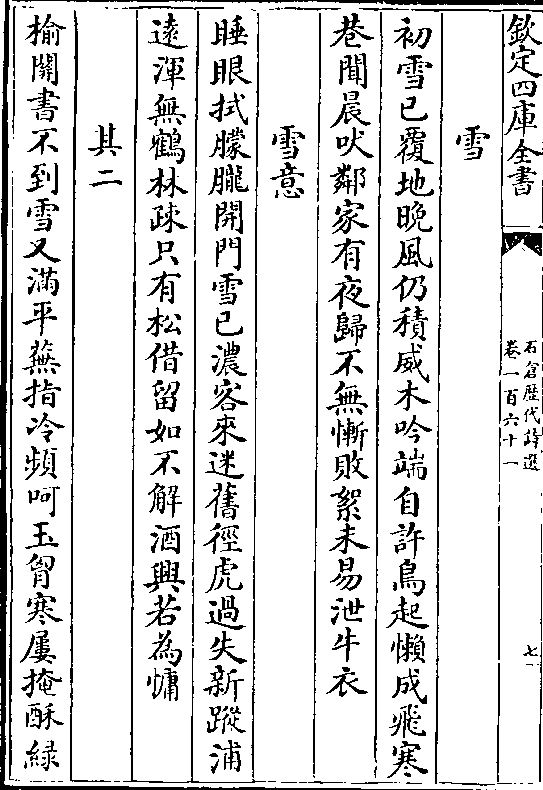 欽定四庫全書
石倉歴代詩選
卷一百六十一
七
雪
初雪已覆地晚風仍積威木吟端自許鳥起懶成飛寒
巷聞晨吠鄰家有夜歸不無慚敗絮未易泄牛衣
雪意
睡眼拭朦朧開門雪已濃客來迷舊徑虎過失新蹤浦
遠渾無鶴林疎只有松借留如不解酒興若為慵
其二
榆關書不到雪又滿平蕪指冷頻呵玉胷寒屢掩酥緑